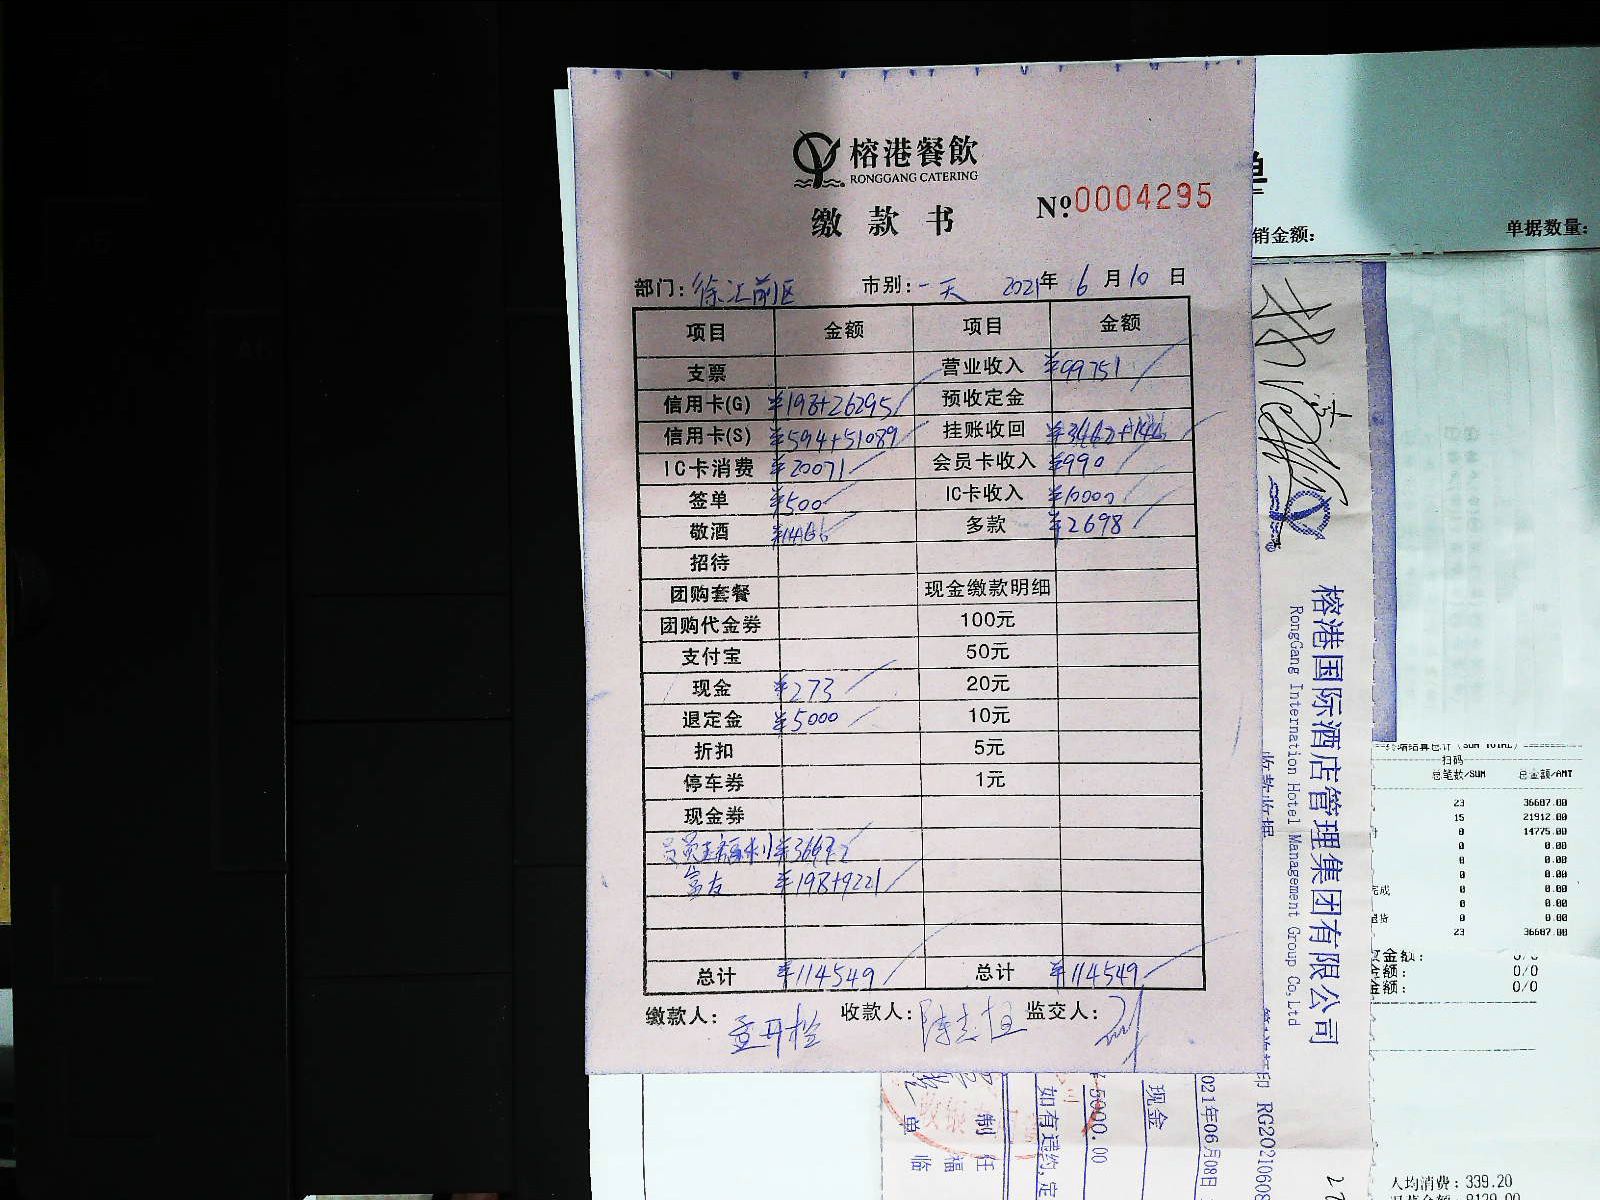 榕港餐飲
RONGGANG CATERING
缴款书
№0004295
部门: 徐汇前区 市别: 一天 2021年 6月10日
项目 金额 项目 金额
支票 营业收入 ¥99751
信用卡(G) ¥198+26295 预收定金
信用卡(S) ¥594+51089 挂账收回
IC卡消费 ¥20071 会员卡收入 ¥990
签单 ¥500 IC卡收入
敬酒 多款 ¥2698
招待
团购套餐 现金缴款明细
团购代金券 100元
支付宝 50元
现金 ¥273 20元
退定金 ¥5000 10元
折扣 5元
停车券 1元
现金券
¥198+9221
总计 ¥114549 总计 ¥114549
缴款人: 收款人: 监交人:
单
销金额: 单据数量:
榕港国际酒店管理集团有限公司
RongGang Internation Hotel Management Group Co,Ltd
收款收据
终端结算总计 (SUM TOTAL)
扫码
总笔数/SUM 总金额/AMT
23 36687.00
15 21912.00
8 14775.00
0 0.00
0 0.00
0 0.00
完成 0 0.00
0 0.00
退货 0 0.00
23 36687.00
金额: 0/0
金额: 0/0
金额: 0/0
RG20210608
021年06月08日
现金
5000.00
如有违约,定
制 任
单 福
临
人均消费: 339.20